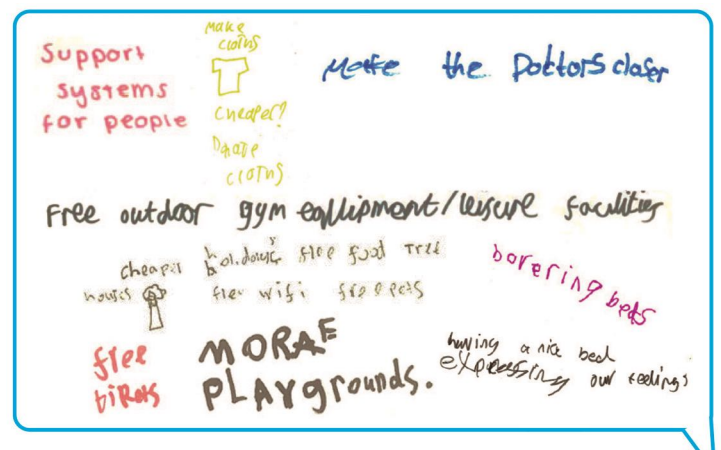 Support
systems
for people
make
cloths
cheaper?
Donate
cloths
Make the Doctors closer
Free outdoor gym eqllipment/leisure facilities
cheaper
houses
holidays free food Tree
free wifi free pets
borering beds
free
MORAE
PLAYgrounds.
having a nice bed
expressing our feelings